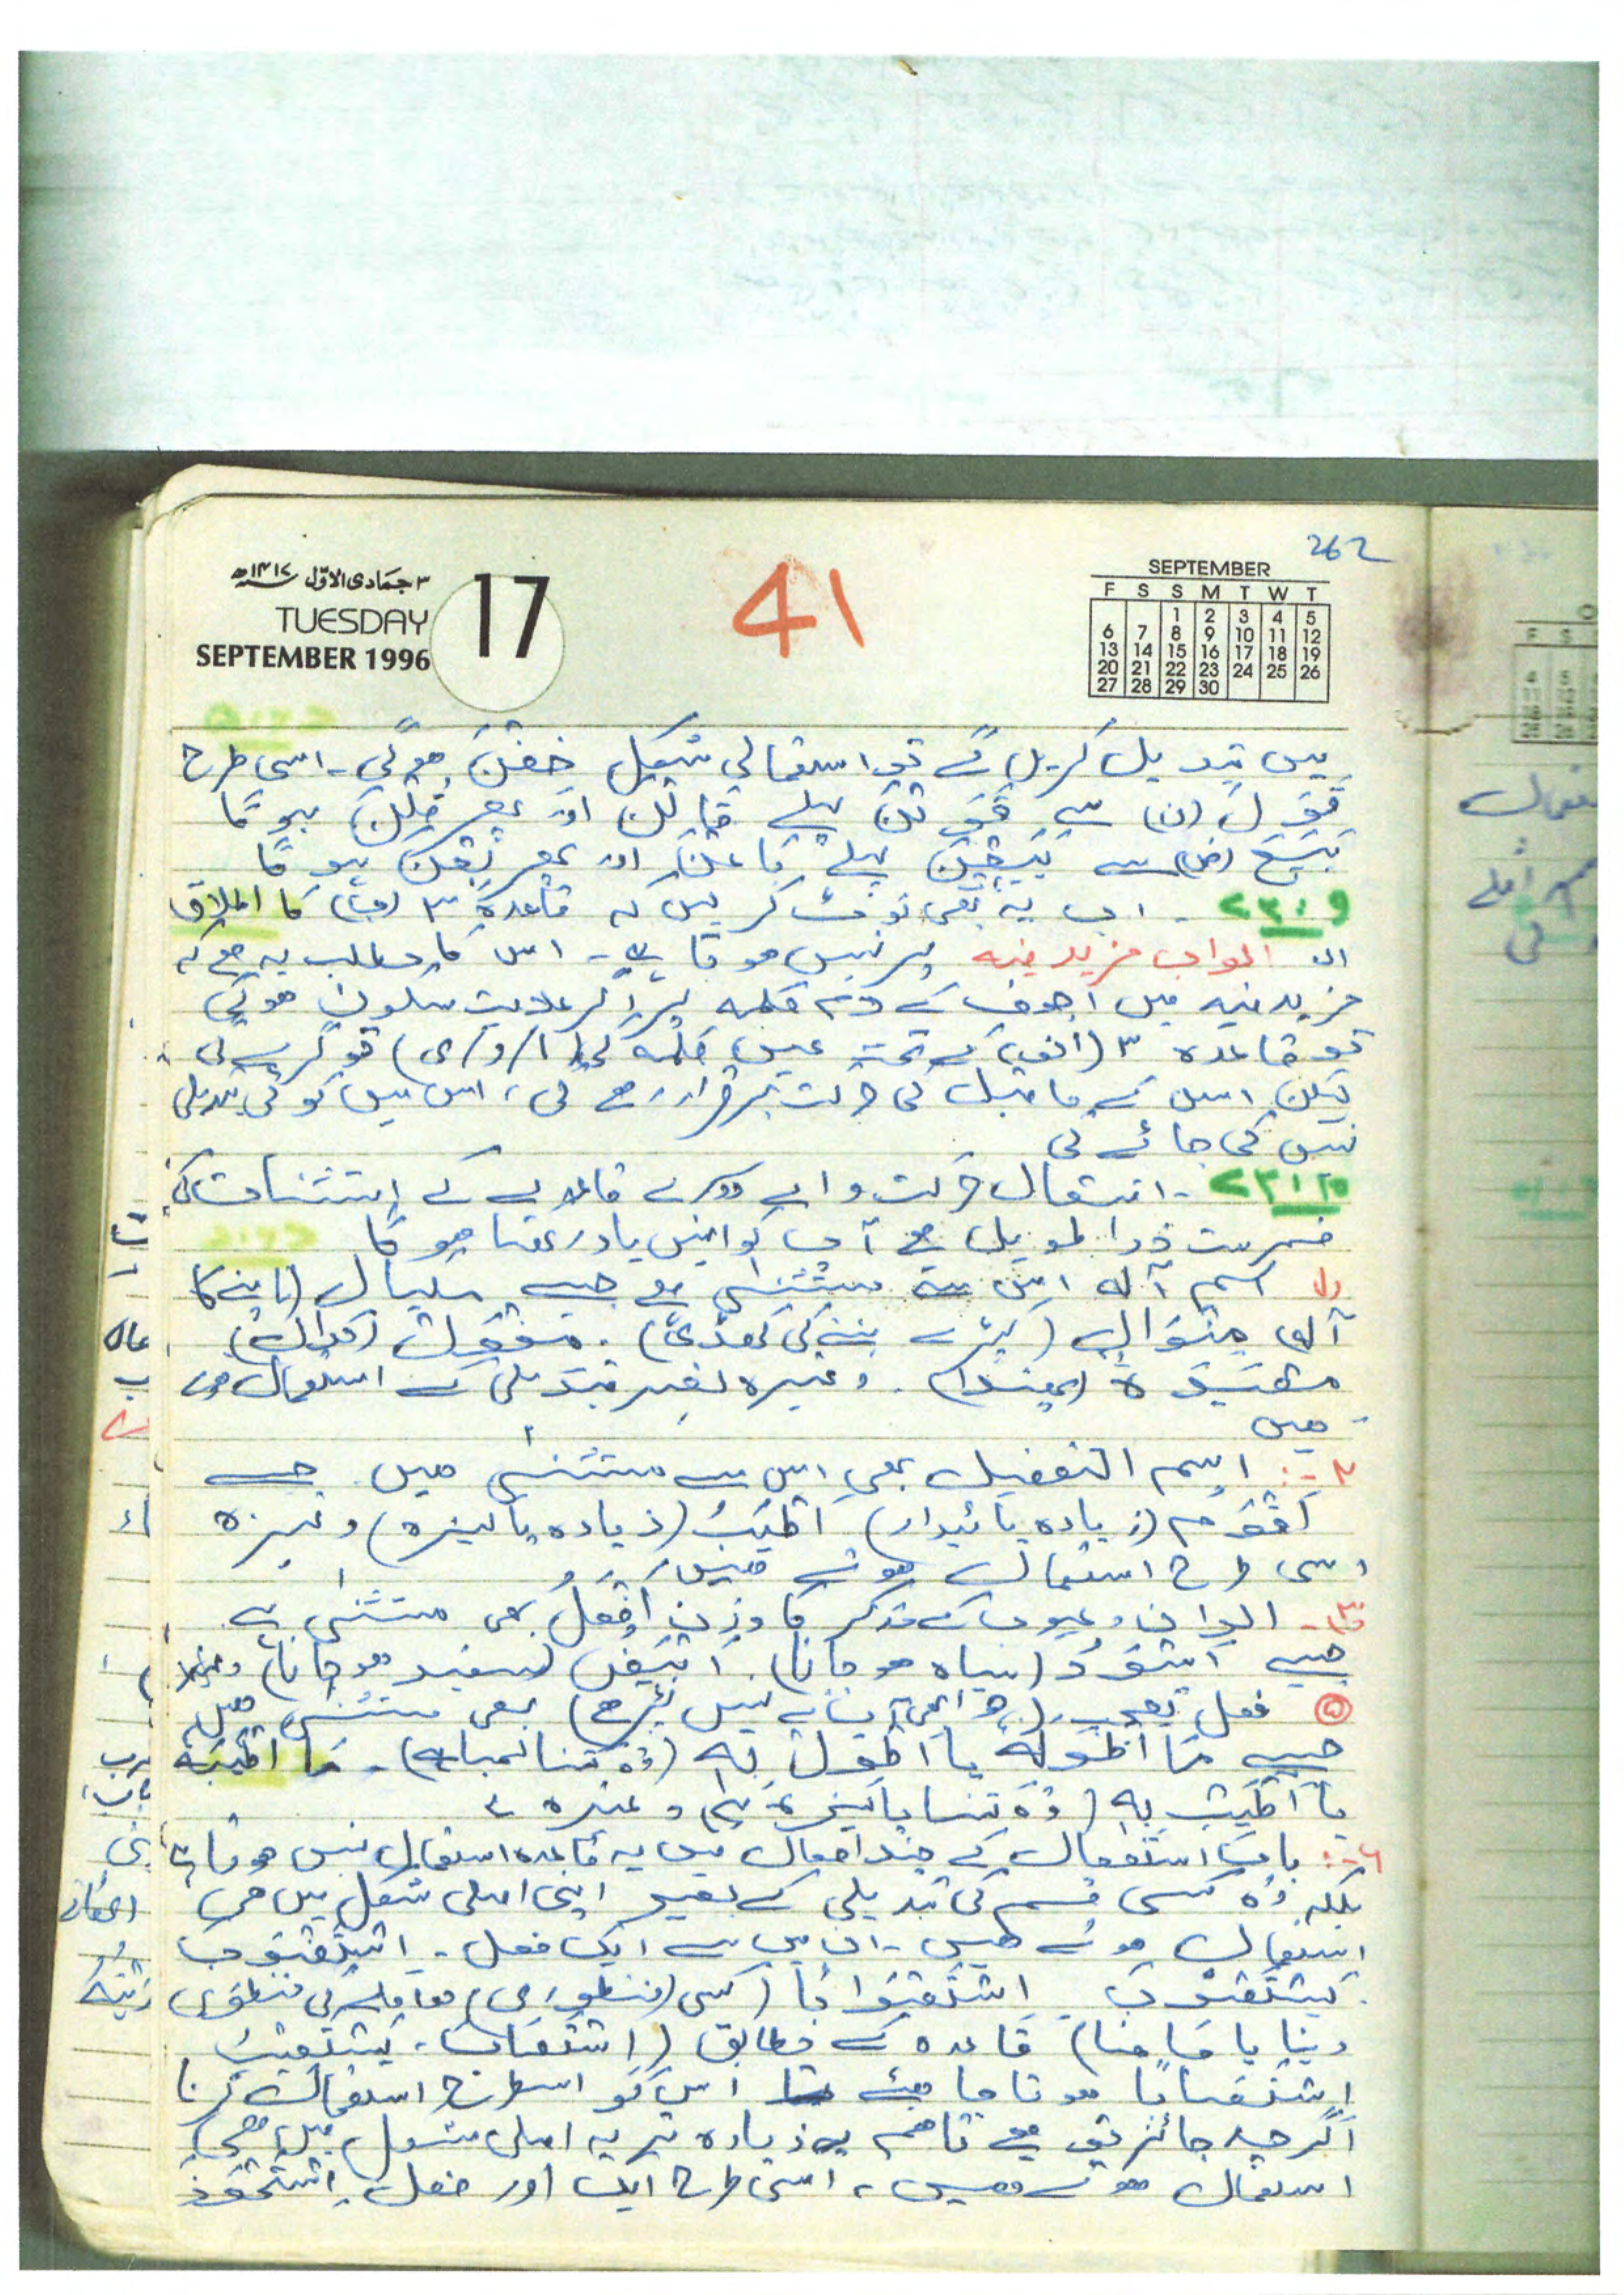 262
۳ جمادی الاوّل ۱۴۱۷ھ
TUESDAY
SEPTEMBER 1996
17
41
SEPTEMBER
F S S M T W T
1 2 3 4 5
6 7 8 9 10 11 12
13 14 15 16 17 18 19
20 21 22 23 24 25 26
27 28 29 30
میں تبدیل کریں گے تو استعمالی شکل خِفْنَ ہوگی۔ اسی طرح
قَوَلَ (ن) سے قَوَلْنَ پہلے قَالْنَ اور پھر قُلْنَ ہوگا
بَیَعَ (ض) سے بَیَعْنَ پہلے بَاعْنَ اور پھر بِعْنَ ہوگا
۹ : ۲۳ ۔ اب یہ بھی نوٹ کریں کہ قاعدہ ۳ (ب) کا اطلاق
ابواب مزید فیہ پر نہیں ہوتا ہے۔ اس کا مطلب یہ ہے کہ
مزید فیہ میں اجوف کے لام کلمہ پر اگر علامت سکون ہوگی
تو قاعدہ ۳ (الف) کے تحت عین کلمہ کی (ا/و/ی) تو گرے گی
لیکن اس کے ماقبل کی حرکت برقرار رہے گی، اس میں کوئی تبدیلی
نہیں کی جائے گی
۱۰ : ۲۳ ۔ انتقال حرکت والے دوسرے قاعدے کے استثنات کی
فہرست ذرا طویل ہے آپ کو انہیں یاد رکھنا ہوگا
اسم آلہ اس سے مستثنٰی ہے جیسے مکیال (ناپنے کا
آلہ) مِنْوَالٌ (کپڑے بننے کی کھڈی)۔ مِغْوَلٌ (کدال)
مِصْیَدَۃٌ (پھندا)۔ وغیرہ بغیر تبدیلی کے استعمال ہوتے
ہیں
۲:۔ اسم التفضیل بھی اس سے مستثنٰی ہیں جیسے
اَقْوَمُ (زیادہ پائیدار) اَطْیَبُ (زیادہ پاکیزہ) وغیرہ
اسی طرح استعمال ہوتے ہیں
۳۔ الوان و عیوب کے مذکر کا وزن اَفْعَلُ بھی مستثنٰی ہے
جیسے اَسْوَدُ (سیاہ ہو جانا)۔ اَبْیَضُ (سفید ہو جانا) وغیرہ
فعل تعجب بھی مستثنٰی ہیں
جیسے مَا اَطْوَلَہٗ یا اَطْوِلْ بِہٖ (وہ کتنا لمبا ہے)۔ مَا اَطْیَبَہٗ
یا اَطْیِبْ بِہٖ (وہ کتنا پاکیزہ ہے) وغیرہ
۶:۔ باب استفعال کے چند افعال میں یہ قاعدہ استعمال نہیں ہوتا
بلکہ وہ کسی قسم کی تبدیلی کے بغیر اپنی اصلی شکل میں ہی
استعمال ہوتے ہیں۔ ان میں سے ایک فعل۔ اِسْتَصْوَبَ
یَسْتَصْوِبُ۔ اِسْتِصْوَابًا (کسی معاملہ کی منظوری
دینا یا چاہنا) قاعدہ کے مطابق (اِسْتَصَابَ، یَسْتَصِیْبُ
اِسْتِصَابًا ہونا چاہیے اس کو اسطرح استعمال کرنا
اگرچہ جائز تو ہے تاہم زیادہ تر یہ اصلی شکل میں ہی
استعمال ہوتے ہیں، اسی طرح ایک اور فعل۔ اِسْتَحْوَذَ